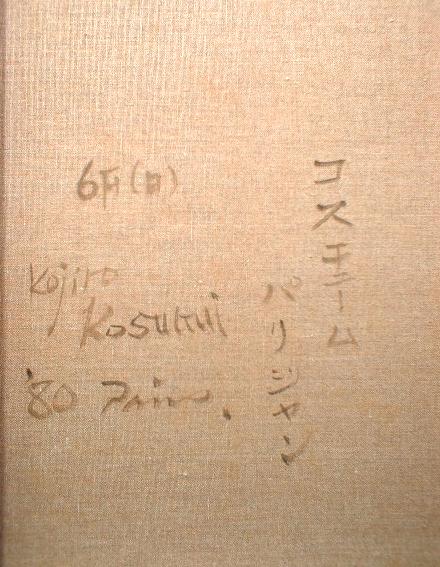 コスチューム
パリジャン
6F(日)
Kojiro
'80 Paris.